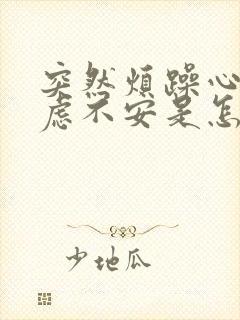 突然烦躁心
虑不安是怎
少地瓜